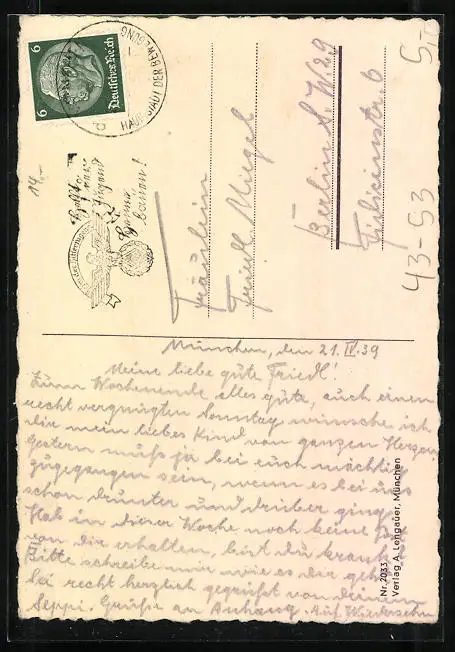 6 Deutsches Reich 6
HAUPTSTADT DER BEWEGUNG
14,-
Helft
Jugend
Heime
bauen!
Fräulein
Friedl
Berlin S.W. 29
43-53
München, den 21. IV. 39
Meine liebe gute Friedl!
Zum Wochenende alles gute, auch einen
recht vergnügten Sonntag wünsche ich
dir mein liebes Kind von ganzen Herzen.
Gestern muß ja bei euch mächtig
zugegangen sein, wenn es bei uns
schon drunter und drüber ging.
Hab in dieser Woche noch keine Post
von dir erhalten, bist du krank?
Bitte schreibe mir wie es dir geht
sei recht herzlich gegrüßt von deinem
Seppi. Grüße an Anhang. Auf Wiedersehn
Nr. 2033
Verlag A. Lengauer, München